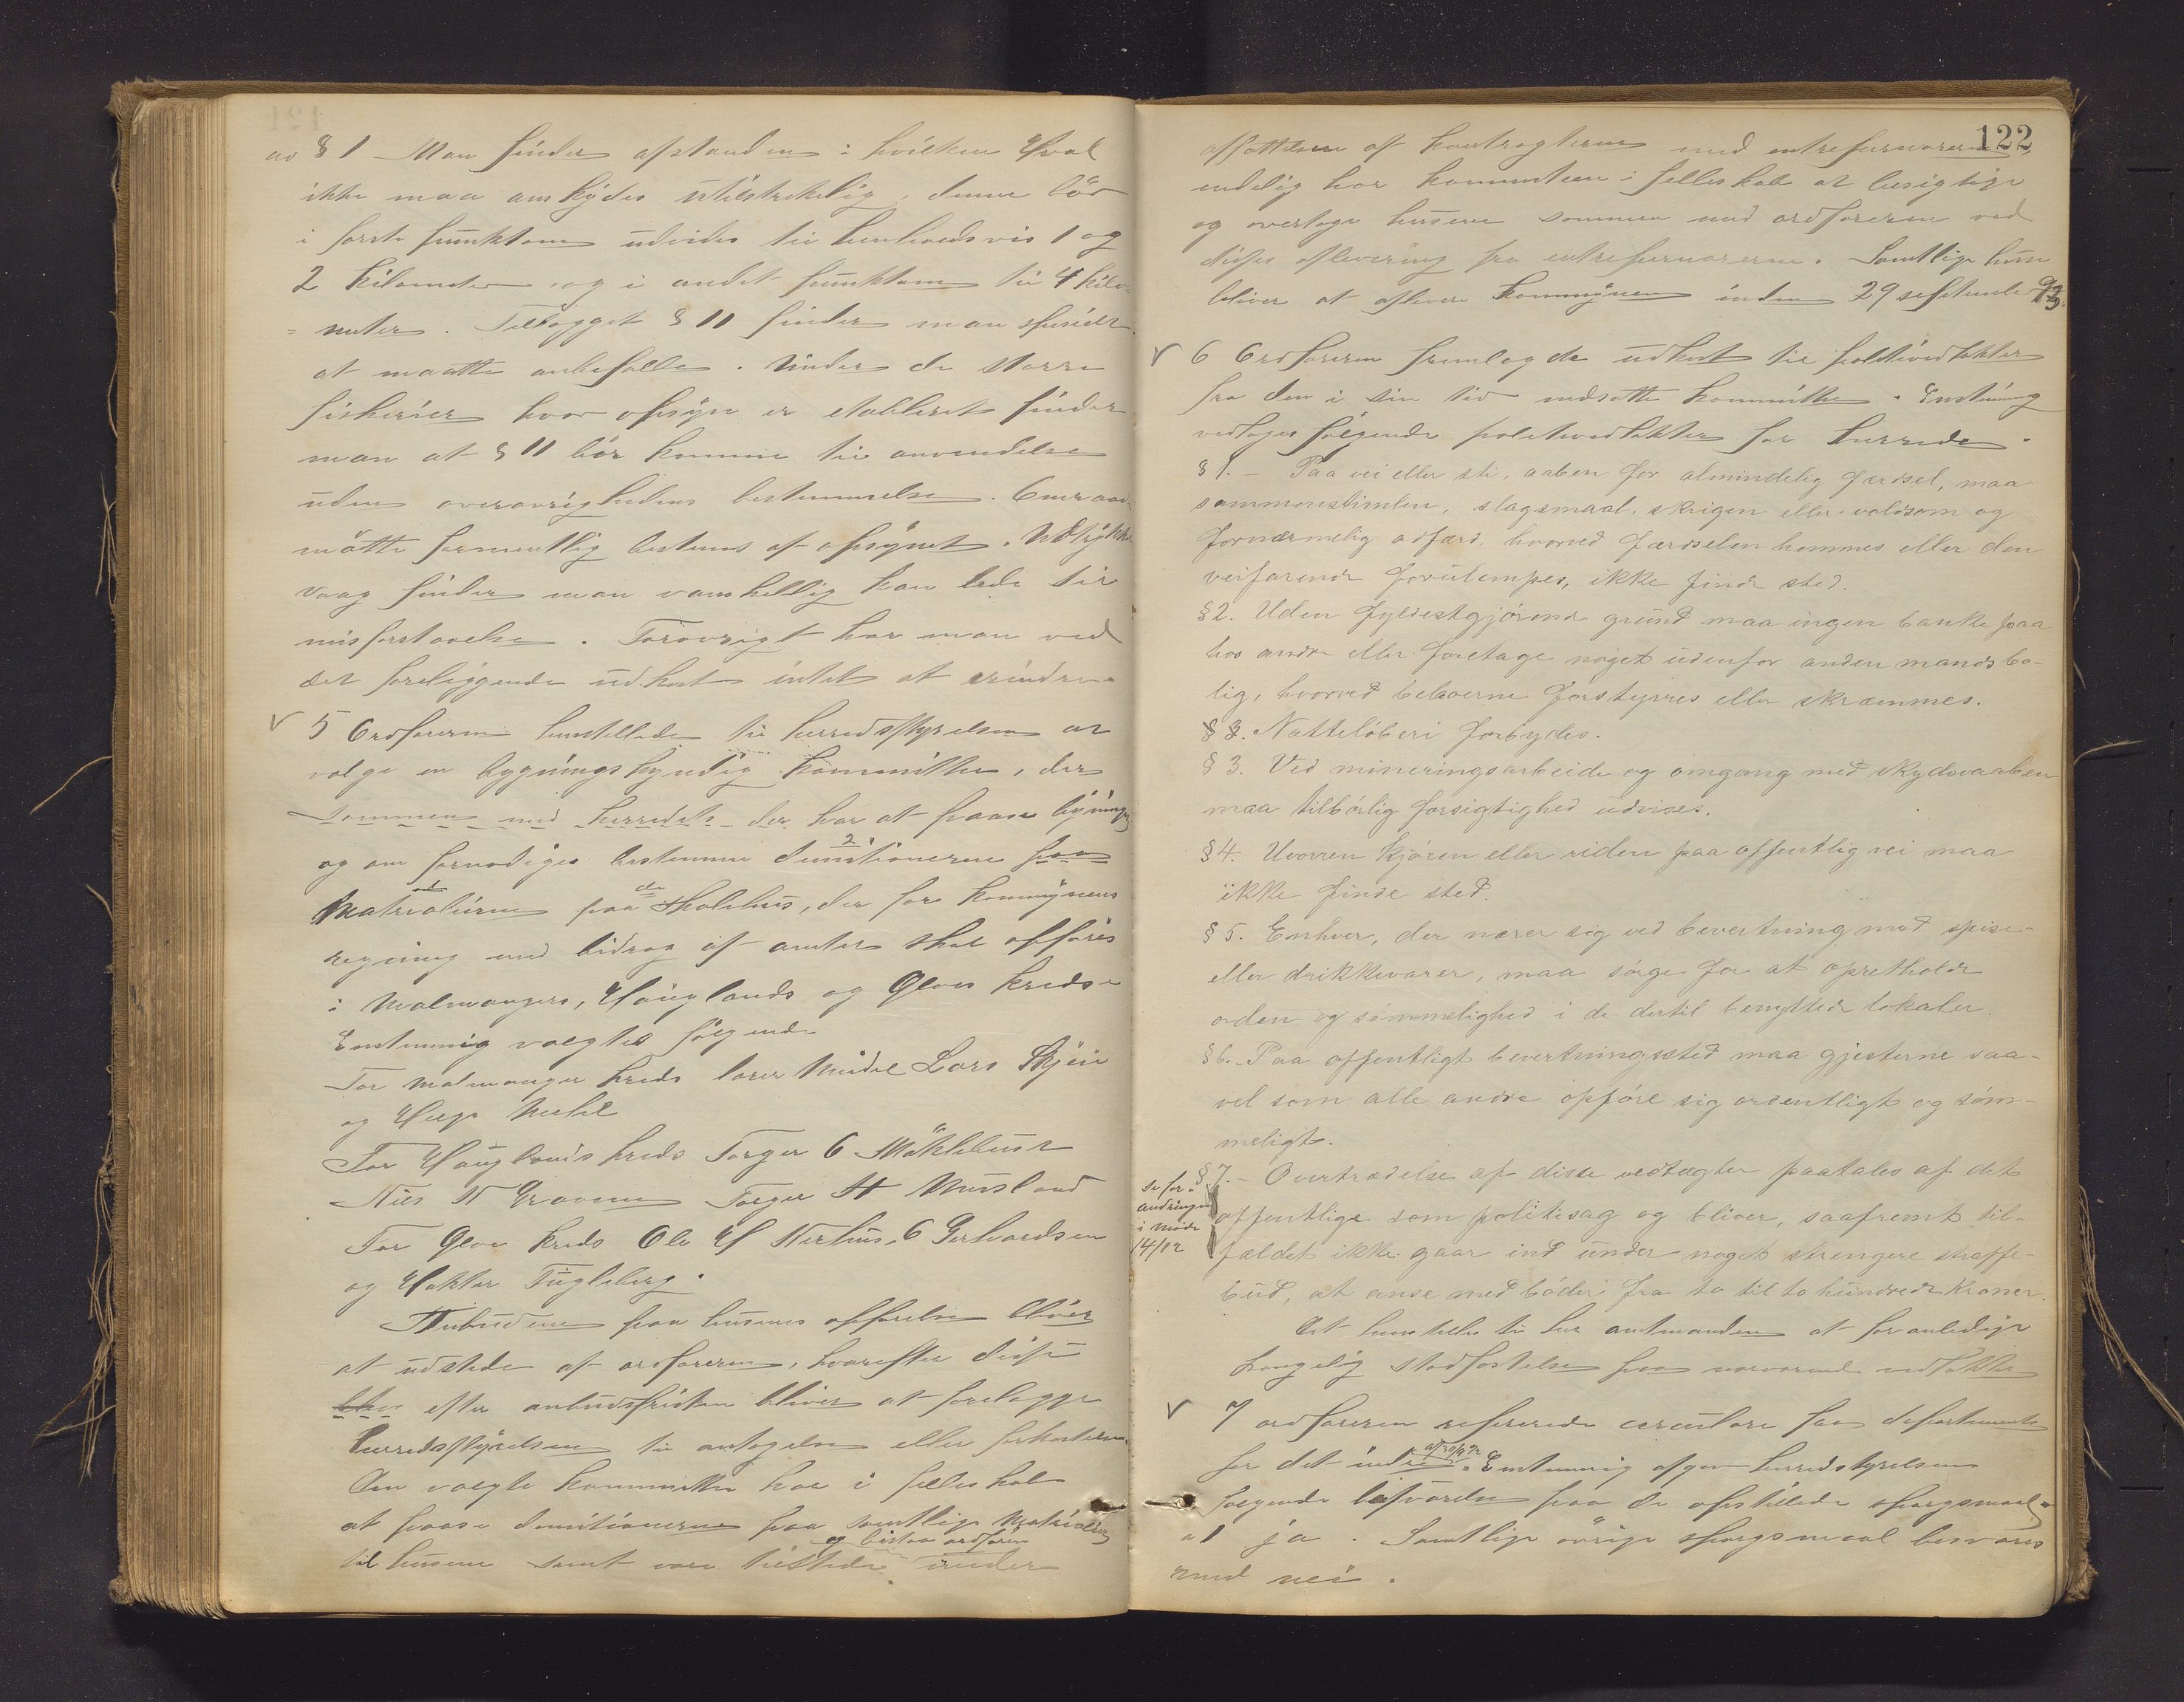 ad § 1 Man finder afstanden i hvilken Hval
ikke maa anskydes utilstrekkelig, denne bör
i förste punktum udvides til henholdsvis 1 og
2 kilometer og i andet punktum til 4 kilo-
meter. Tillægget § 11 finder man specielt
at maatte anbefalle. Under de större
fiskerier hvor opsyn er etableret finder
man at § 11 bör komme til anvendelse
uden overövrighedens bestemmelse. Omraadet
mötte formentlig bestemes af opsynet. Udtrykket
vaag finder man vanskellig kan lede til
misforstaaelse. Forövrigt har man ved
det foreliggende udkast intet at erindre.
5 Ordföreren henstillede til herredsstyrelsen at
vælge en bygningskyndig kommitte, der
sammen med herredets der har at paase bygningen
og om fornödiges bestemme dimitionerne paa
Materialierne paa de Skolehus, der for kommunens
regning med bidrag af amtet skal opföres
i Malmangers, Hauglands og Ølves kreds.
Enstemmig valgtes fölgende
For Malmanger kreds lærer Midel Lars Skjeie
og Helge Mehl
For Hauglands kreds Torger O Möklebust
Nils N Gravem Torger H Musland
For Ølve kreds Ole H Nerhus, O Gerhardsen
og Haktor Fugleberg.
Anbudene paa husenes opförelse bliver
at udstede af ordföreren, hvorefter disse
efter anbudsfristen bliver at forelægge
herredsstyrelsen til antagelse eller forkastelse.
Den valgte kommitte har i felleskab
at paase dimitionerne paa samtlige Materialier
og bistaa ordfören
til husene samt være tilstede under
122
affattelsen af kontragterne med entreprenörerne,
endelig har kommiteen i felleskab at besigtige
og overtage husene sammen med ordföreren ved
disses aflevering fra entreprenörerne. Samtlige huse
bliver at aflevere kommunen inden 29 september 93.
6 Ordföreren fremlagde udkast til politivedtækter
fra den i sin tid nedsatte kommitte. Enstemmig
vedtoges følgende politivedtekter for herredet.
§ 1. – Paa vei eller sti, aaben for almindelig færdsel, maa
sammenstimlen, slagsmaal, skrigen eller voldsom og
fornærmelig adfærd, hvorved færdselen hemmes eller den
veifarende forulempes, ikke finde sted.
§ 2. Uden fyldestgjörende grund maa ingen banke paa
hos andre eller foretage noget udenfor anden mands bo-
lig, hvorved beboerne forstyrres eller skræmmes.
§ 3. Natteløberi forbydes.
§ 3. Ved mineringsarbeide og omgang med skydevaaben
maa tilbörlig forsigtighed udvises.
§ 4. Uvorren kjören eller riden paa offentlig vei maa
ikke finde sted.
§ 5. Enhver, der nærer sig ved bevertning med spise-
eller drikkevarer, maa sörge for at opretholde
orden og sömmelighed i de dertil benyttede lokaler.
§ 6. – Paa offentligt bevertningssted maa gjesterne saa-
vel som alle andre opföre sig ordentligt og söm-
meligt.
§ 7. – Overtrædelse af disse vedtægter paatales af det
offentlige som politisag og bliver, saafremt til-
fældet ikke gaar ind under noget strengere straffe-
bud, at anse med böder fra to til to hundrede kroner.
se for-
andringen
i möde
14/12
Det henstilles til hr amtmanden at foranledige
kongelig stadfæstelse paa nærværende vedtekter
7 ordföreren refererede cirkulære fra departementet
for det indre af 30/9 92. Enstemmig afgav herredstyrelsen
fölgende besvarelse paa de opstillede spörgsmaal.
ad 1 ja. Samtlige övrige spörgsmaal besvares
med nei.